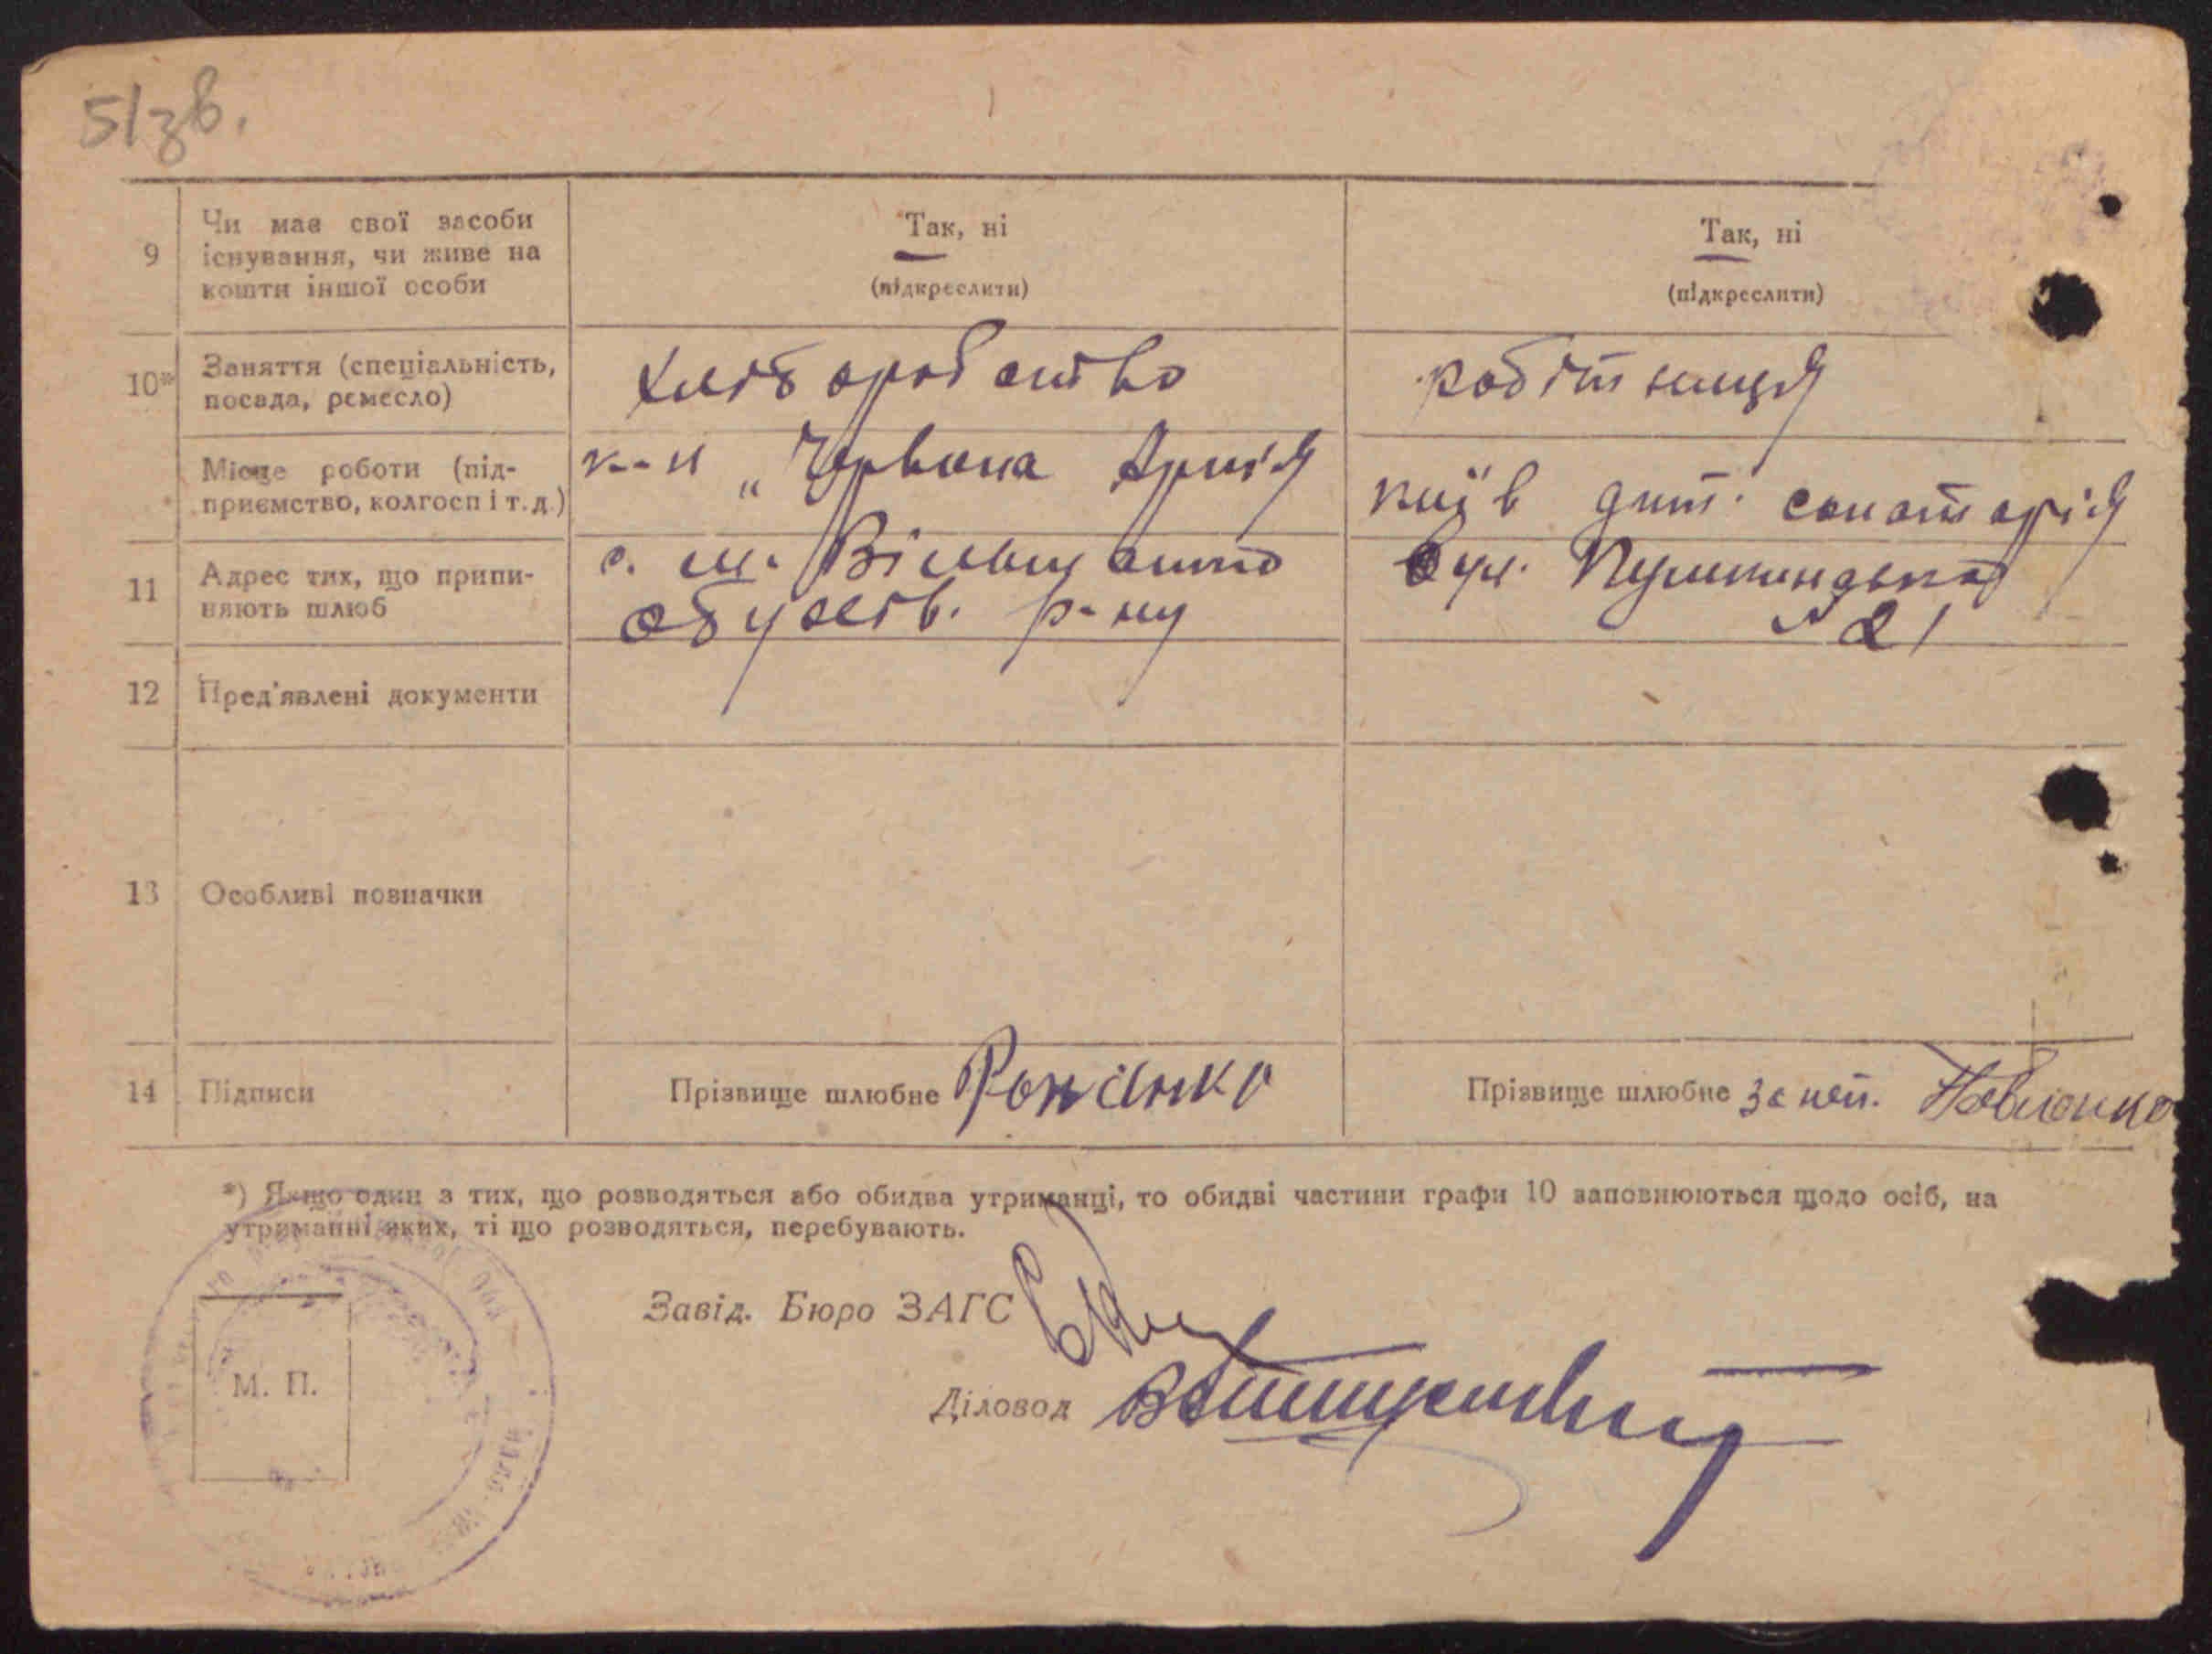 5/зв.
9 Чи має свої засоби існування, чи живе на кошти іншої особи
Так, ні
(підкреслити)
Так, ні
(підкреслити)
10* Заняття (спеціальність, посада, ремесло)
хліборобство
робітниця
Місце роботи (підприємство, колгосп і т.д.)
к-п „Червона Армія
київ дит. санаторія
11 Адрес тих, що припиняють шлюб
с. м. Вільшанка
обухів. р-ну
вул. Пушкинська
№ 21
12 Пред'явлені документи
13 Особливі позначки
14 Підписи
Прізвище шлюбне
Прізвище шлюбне за неп.
*) Якщо один з тих, що розводяться або обидва утриманці, то обидві частини графи 10 заповнюються щодо осіб, на
утриманні яких, ті що розводяться, перебувають.
Завід. Бюро ЗАГС
М. П.
Діловод